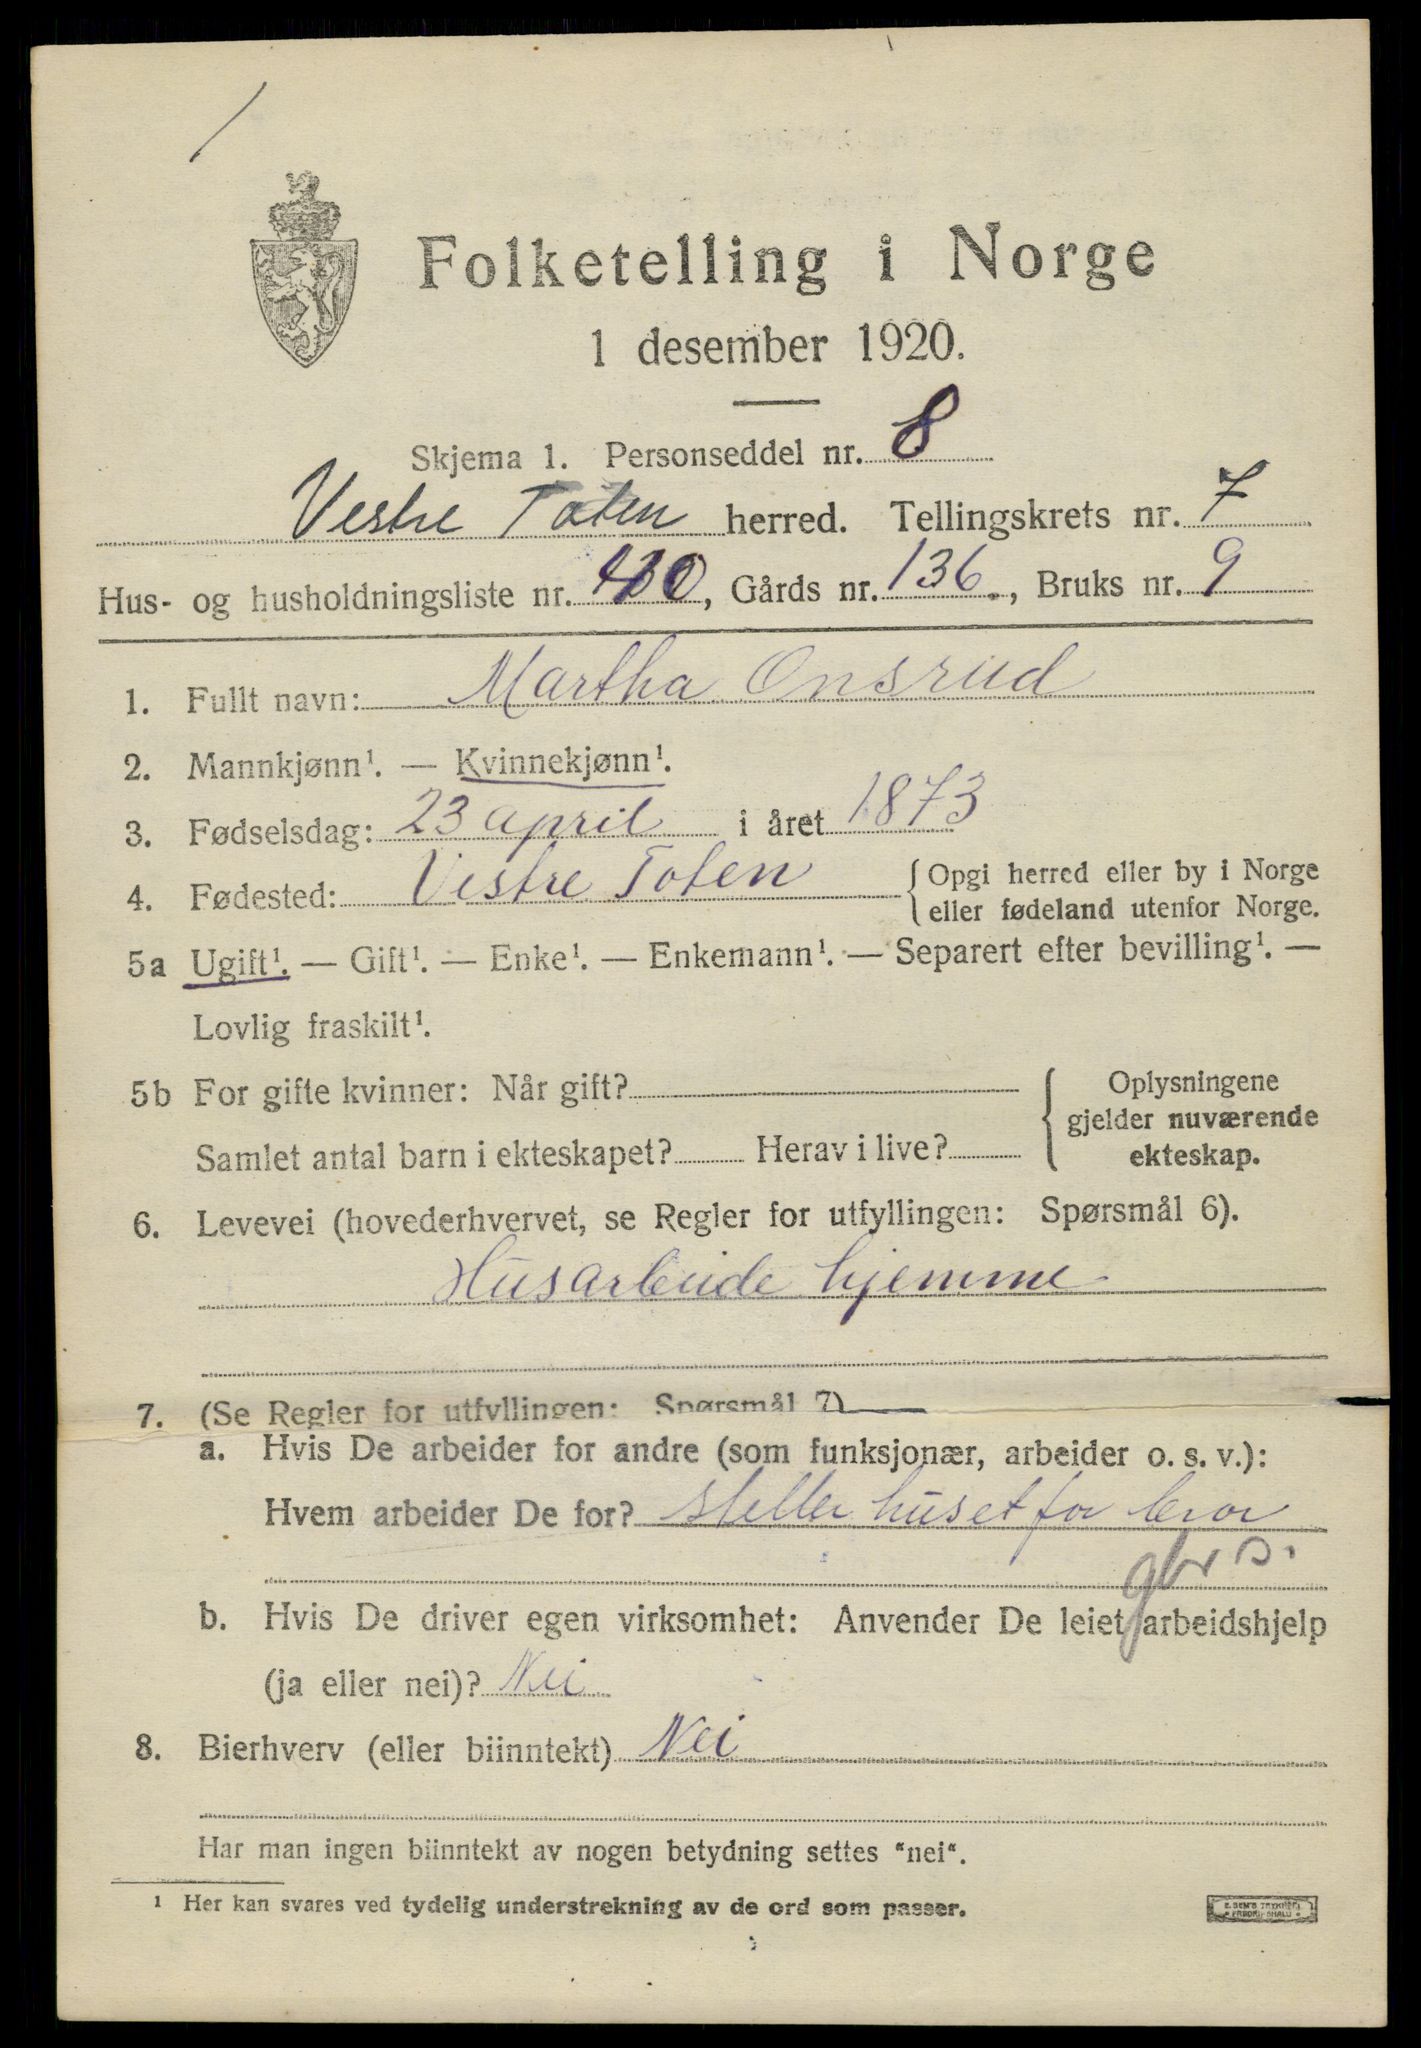 Folketelling i Norge
1 desember 1920.
Skjema 1. Personseddel nr. 8
Vestre Toten herred. Tellingskrets nr. 7
Hus- og husholdningsliste nr. , Gårds nr. 136., Bruks nr. 9
1. Fullt navn: Martha Onsrud
2. Mannkjønn¹. — Kvinnekjønn¹.
3. Fødselsdag: 23 april i året 1873
4. Fødested: Vestre Toten { Opgi herred eller by i Norge
eller fødeland utenfor Norge.
5a Ugift¹. — Gift¹. — Enke¹. — Enkemann¹. — Separert efter bevilling¹. —
Lovlig fraskilt¹.
5b For gifte kvinner: Når gift? { Oplysningene
gjelder nuværende
Samlet antal barn i ekteskapet? Herav i live? ekteskap.
6. Levevei (hovederhvervet, se Regler for utfyllingen: Spørsmål 6).
Husarbeide hjemme
7. (Se Regler for utfyllingen: Spørsmål 7)
a. Hvis De arbeider for andre (som funksjonær, arbeider o. s. v.):
Hvem arbeider De for? steller huset for bror
gbr s.
b. Hvis De driver egen virksomhet: Anvender De leiet arbeidshjelp
(ja eller nei)? Nei
8. Bierhverv (eller biinntekt) Nei
Har man ingen biinntekt av nogen betydning settes "nei".
¹ Her kan svares ved tydelig understrekning av de ord som passer.